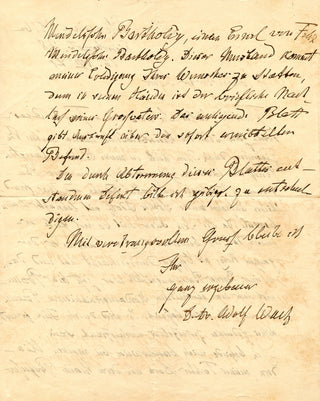 Mendelssohn Bartholdy, einem Enkel von Felix
Mendelssohn Bartholdy. Dieser Umstand kommt
meiner Erledigung Ihres Wunsches zu statten,
denn in seinen Händen ist der briefliche Nach
laß seines Großvaters. Das anliegende Blatt
gibt Auskunft über den sofort ermittelten
Befund.
Den durch Abtrennung dieses Blattes ent-
standenen Defect bitte ich gütigst zu entschul
digen.
Mit vertrauensvollem Gruß bleibe ich
Ihr
ganz ergebener
Dr. Adolf Wach